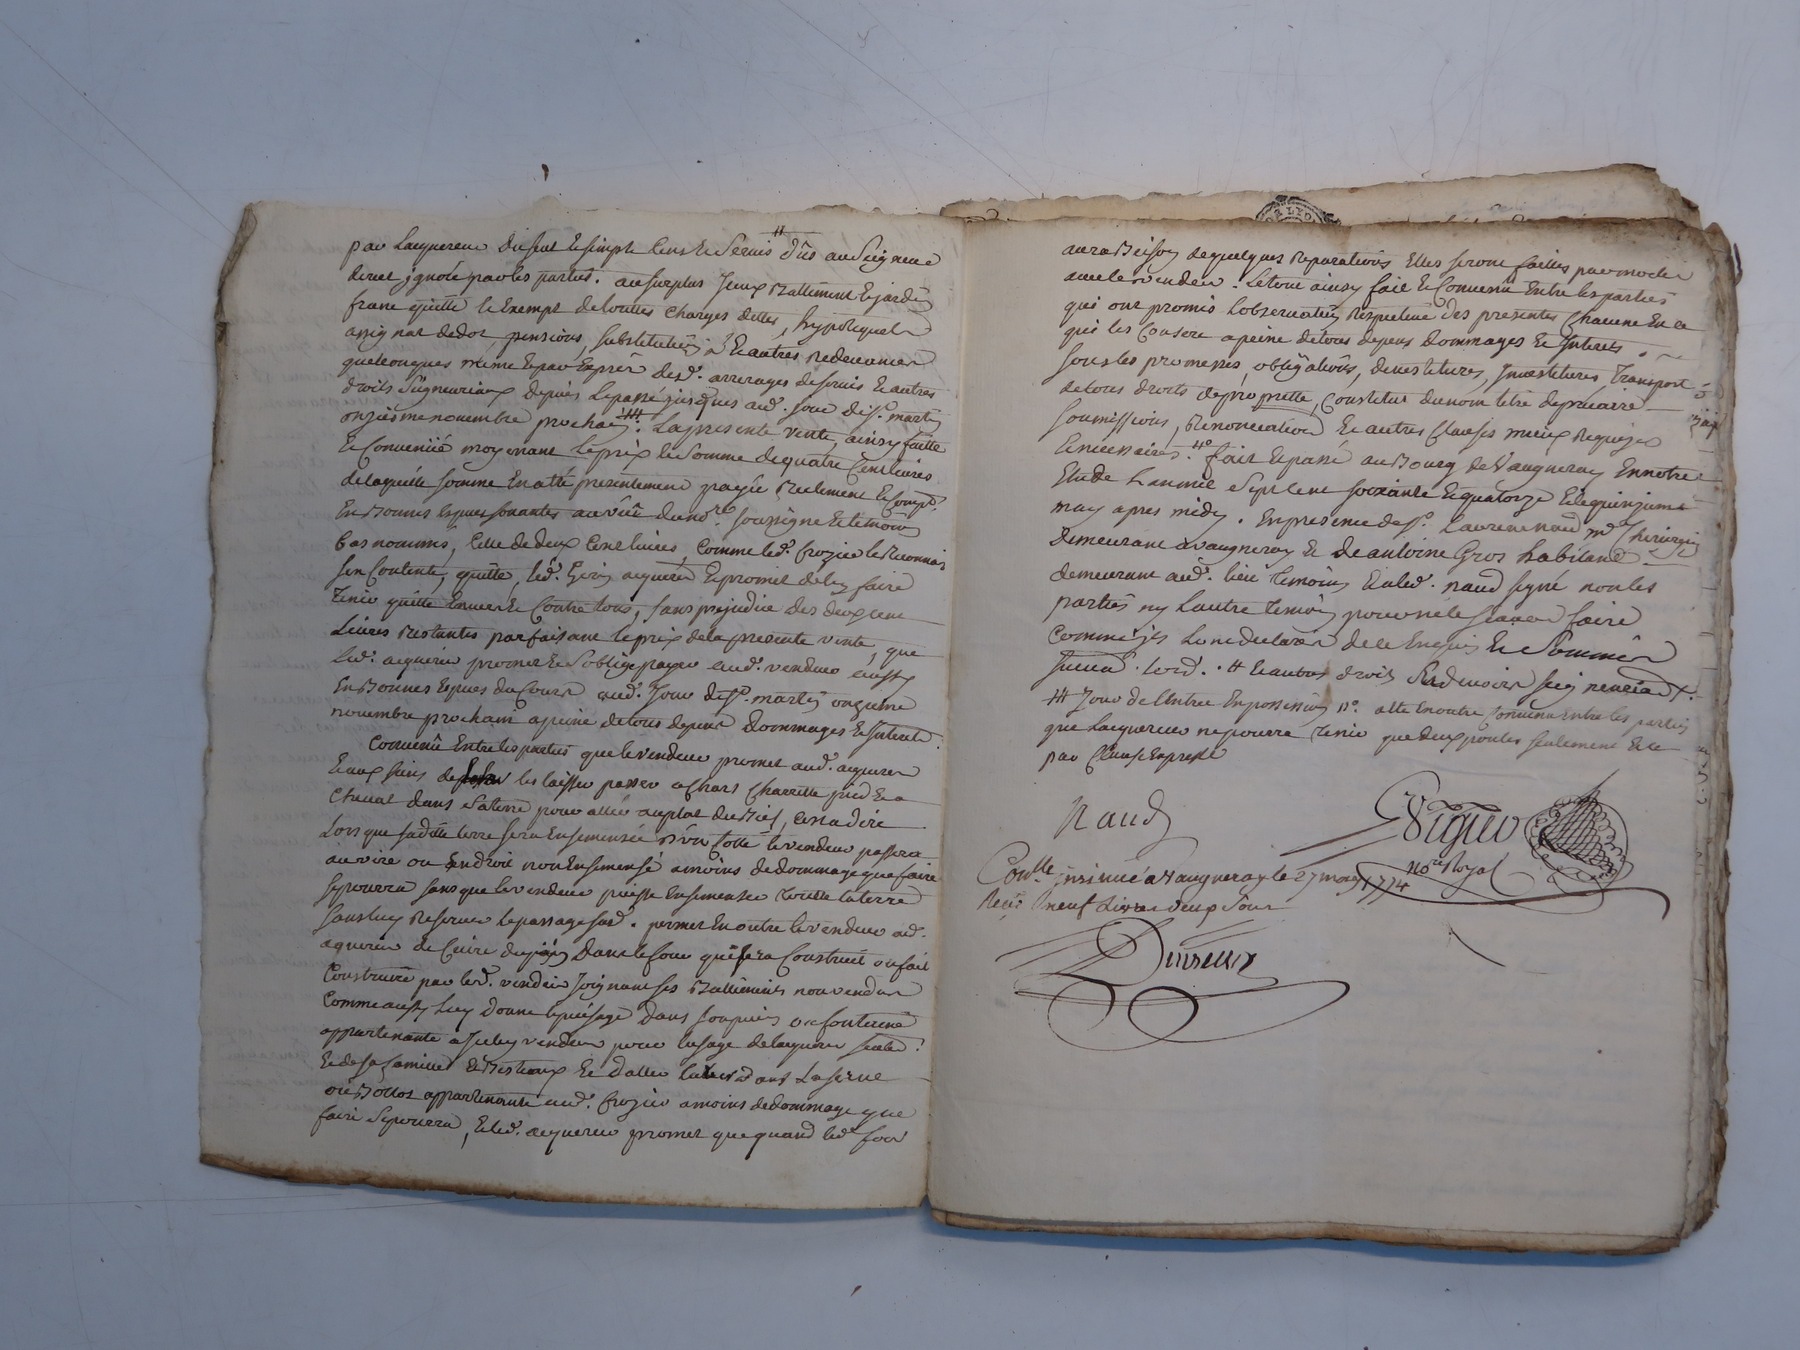 par Lacquereur du seul & simple Cens & Servis dûs au Seigneur
direct ignoré par les parties. au surplus Iceux Battiment & jardin
franc quitte & Exempt de touttes charges dettes, hypoteques
assignat de dot, pensions, substitutions & autres Redevances
quelconques meme & par Exprès des d. arrerages de servis & autres
droits Seigneuriaux depuis Le passé jusques aud. jour de St. martin
onzieme novembre prochain. La presente vente, ainsy faitte
& Convenüe moyenant Le prix & Somme de quatre Cent livres
de laquelle somme En a été presentement payée Reelement & Compt.
En Bonnes Especes sonantes au vû du nore. soussigné & temoins
bas nommés, Celle de deux Cent livres, Comme led. Crozier le Reconnait
sen Contente, quitte, led. acquereur & promet de len faire
tenir quitte Envers & Contre tous, sans prejudice des deux cent
Livres Restantes parfaisant le prix de la presente vente, que
led. acquereur promet & soblige payer aud. vendeur aussy
En Bonnes Especes du Cours aud. Jour de St. martin onzieme
novembre prochain a peine de tous depens dommages & Interets.
Convenû Entre les parties que le vendeur promet aud. acquereur
& aux siens de les laisser passer a chars Charrette pied & a
Cheval dans sa terre pour aller au plat du Bief, cest a dire
Lors que sad. terre sera Ensemensée d'un Cotté le vendeur passera
au vire ou Endroit non Ensemensé a moins de dommage que faire
se pourra sans que le vendeur puisse Ensemenser toutte la terre
sans luy Reserver le passage sud. permet En outre le vendeur aud.
aquereur de Cuire du pain Dans le four qui sera Construit ou fait
Construire par led. vendeur Joignant ses Battiments non vendus
Comme aussy Luy donne le puisage dans son puits ou fontaine
appartenante a Iceluy vendeur pour lusage de lacquereur seulem.
& de sa famille & Bestiaux & d'aller laver dans La serve
ou Bottas appartenante aud. Crozier a moins de dommage que
faire se pourra, & led. acquereur promet que quand led. four
aura Besoin de quelques Reparations Elles seront faittes par moitié
avec le vendeur. Le tout ainsy fait & Convenu Entre les parties
qui ont promis Lobservation Respective des presentes Chacune En ce
qui les Concerne a peine de tous depens dommages & Interets
sous les promesses, obligations, devestitures, Investitures, Transport
de tous droits de proprieté, Constitut du nom titre de precaire
soumissions, Renonciations & autres Clauses mieux Requises
& necessaires. fait & passé au Bourg de Vaugneray En notre
Etude Lan mil sept cent soixante & quatorze & le quinzieme
may apres midy. En presence de sr. Laurent naud me. Chirurgien
demeurant a vaugneray & de antoine Gros habitant
demeurant aud. lieu temoins & a led. naud signé non les
parties ny Lautre temoin pour ne le scavoir faire
Comme ils Lont declaré de ce Enquis & Sommés
suivant Lord. # & autres droits & devoirs seigneuriaux.
### Jour de Lentrée En possession no. a été En outre Convenu Entre les parties
que Lacquereur ne pourra tenir que deux poules seulement & ce
par Clause Expresse
Naud
Viguier
Nore. Royal
Conllé. insinué a Vaugneray le 27 may 1774
Reçu neuf Livres deux sous